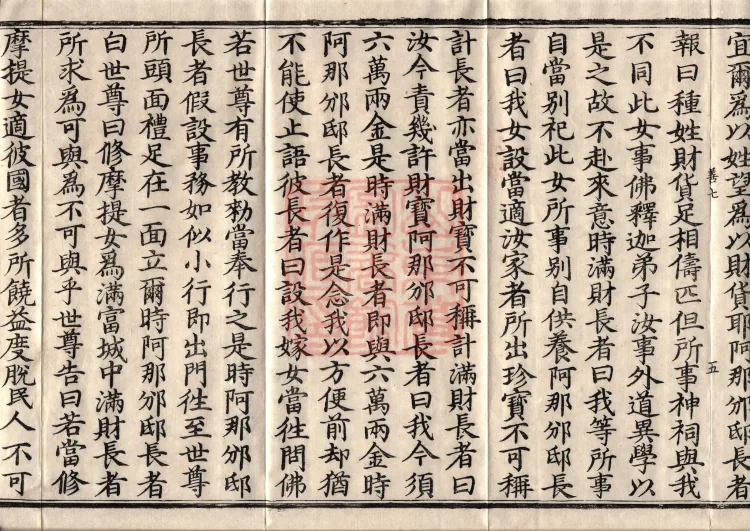 宜爾爲以姓望爲以財貨耶阿那邠邸長者
善七
五
報曰種姓財貨足相儔匹但所事神祠與我
不同此女事佛釋迦弟子汝事外道異學以
是之故不赴來意時滿財長者曰我等所事
自當別祀此女所事別自供養阿那邠邸長
者曰我女設當適汝家者所出珍寶不可稱
計長者亦當出財寶不可稱計滿財長者曰
汝今責幾許財寶阿那邠邸長者曰我今須
六萬兩金是時滿財長者即與六萬兩金時
阿那邠邸長者復作是念我以方便前却猶
不能使止語彼長者曰設我嫁女當徃問佛
若世尊有所教勑當奉行之是時阿那邠邸
長者假設事務如似小行即出門徃至世尊
所頭面禮足在一面立爾時阿那邠邸長者
白世尊曰修摩提女爲滿富城中滿財長者
所求爲可與爲不可與乎世尊告曰若當修
摩提女適彼國者多所饒益度脫民人不可